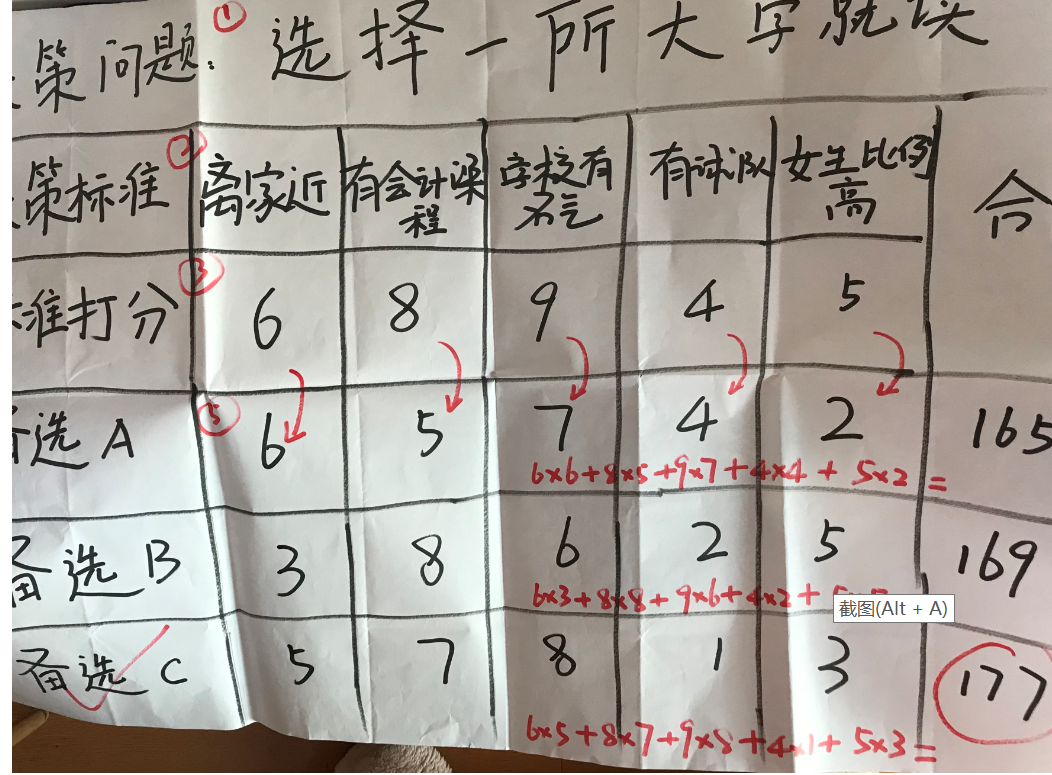 策问题：① 选择一所大学就读
策标准 ② 离家近 有会计课程 学校有名气 有球队 女生比例高 合
标准打分 ③ 6 8 9 4 5
备选A ⑤ 6 5 7 4 2 165
6×6+8×5+9×7+4×4+5×2=
备选B 3 8 6 2 5 169
6×3+8×8+9×6+4×2+
截图(Alt + A)
备选C 5 7 8 1 3 177
6×5+8×7+9×8+4×1+5×3=